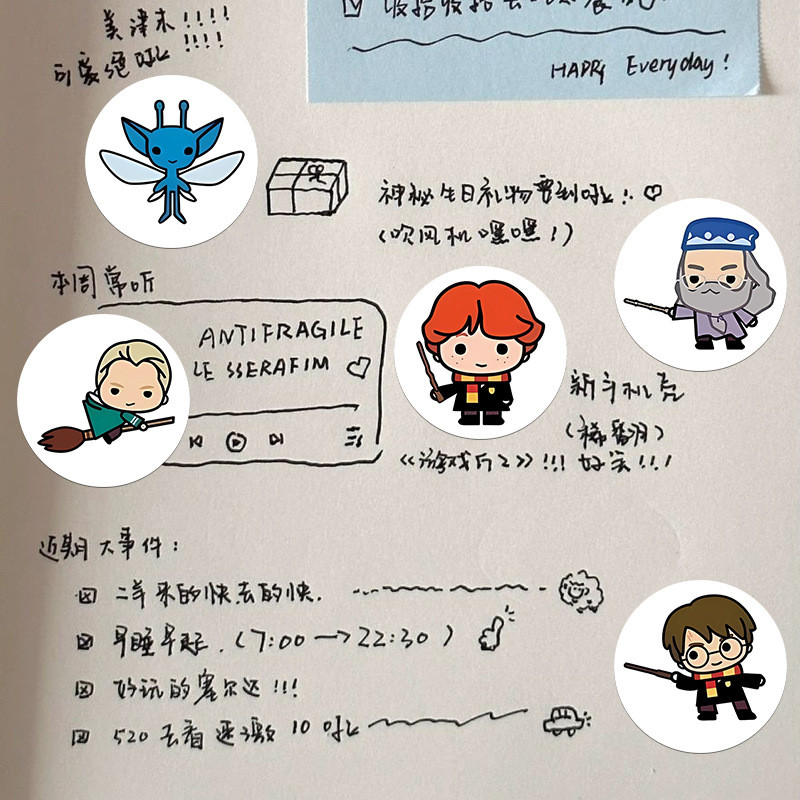 美津未!!!!
可爱绝啦!!!!
收拾收拾去
HAPPY Everyday!
神秘生日礼物要到啦!! ♡
(吹风机嘿嘿!)
本周常听
ANTIFRAGILE
LE SSERAFIM ♡
新手机壳
(稀翻羽)
《游戏厅2》!!! 好笑!!!
近期大事件:
二羊来的快去的快.
早睡早起. (7:00→22:30)
好玩的塞尔达!!!
520去看速激10啦